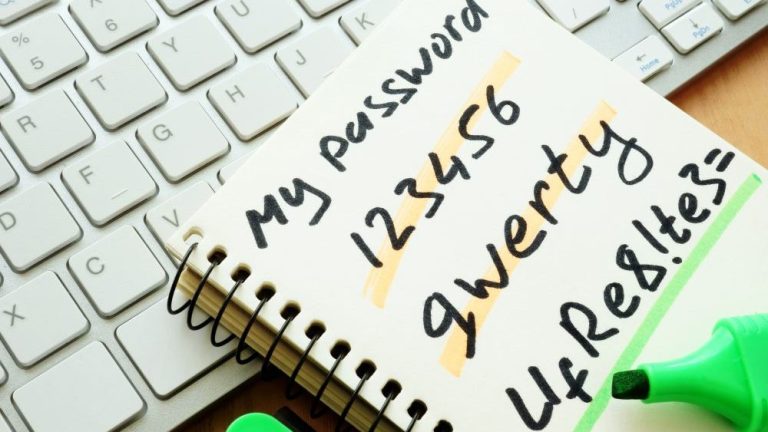 My password
123456
qwerty
UfRe8!te3=
%
5
6
7
R
T
Y
U
I
D
F
G
H
J
K
X
C
V
Home
PgUp
PgDn